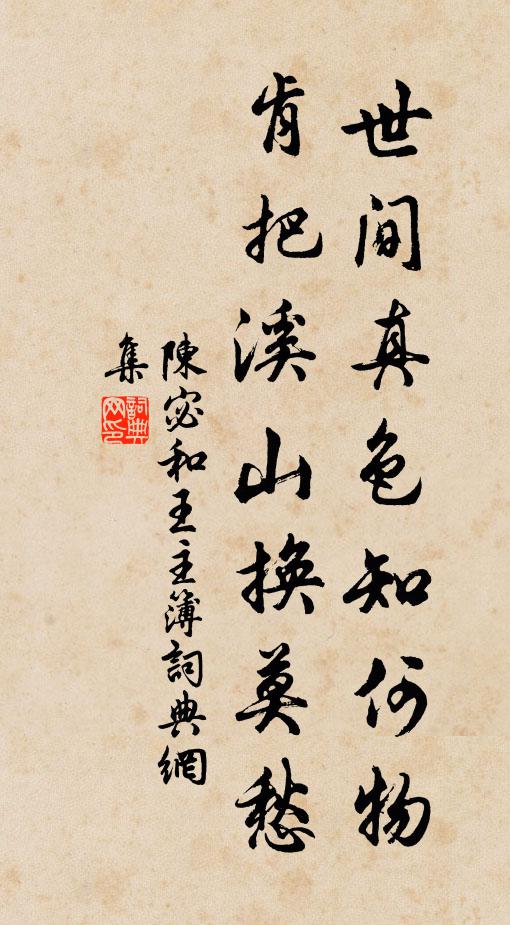 世間真色知何物
肯把溪山換莫愁
陳宓和王主簿詞典網
集
詞典網印